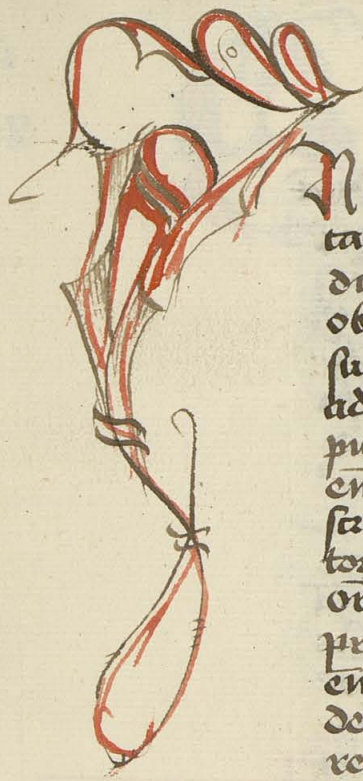 N
ta
di
ob
su
ad
pu
en
scr
tor
or
pr
en
de
re